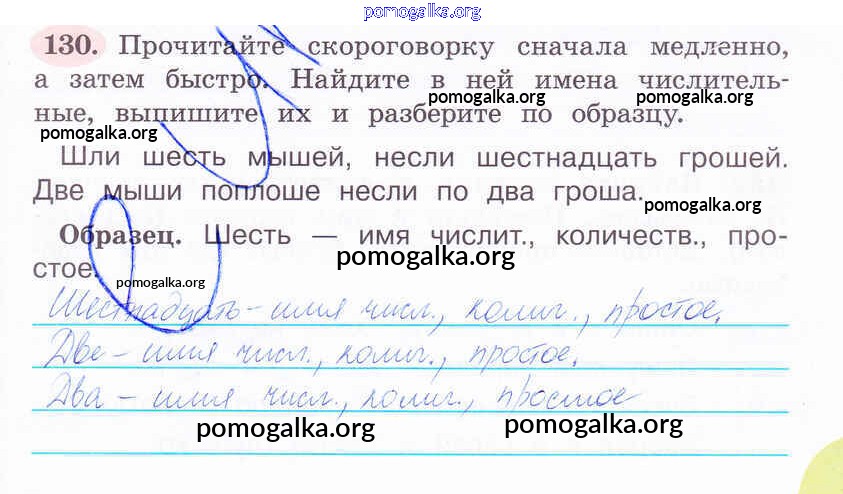 pomogalka.org
130. Прочитайте скороговорку сначала медленно,
а затем быстро. Найдите в ней имена числитель-
pomogalka.org pomogalka.org
ные, выпишите их и разберите по образцу.
pomogalka.org
Шли шесть мышей, несли шестнадцать грошей.
Две мыши поплоше несли по два гроша.
pomogalka.org
Образец. Шесть — имя числит., количеств., про-
pomogalka.org
стое.
pomogalka.org
Шестнадцать – имя числ., колич., простое.
Две – имя числ., колич., простое.
Два – имя числ., колич., простое
pomogalka.org pomogalka.org